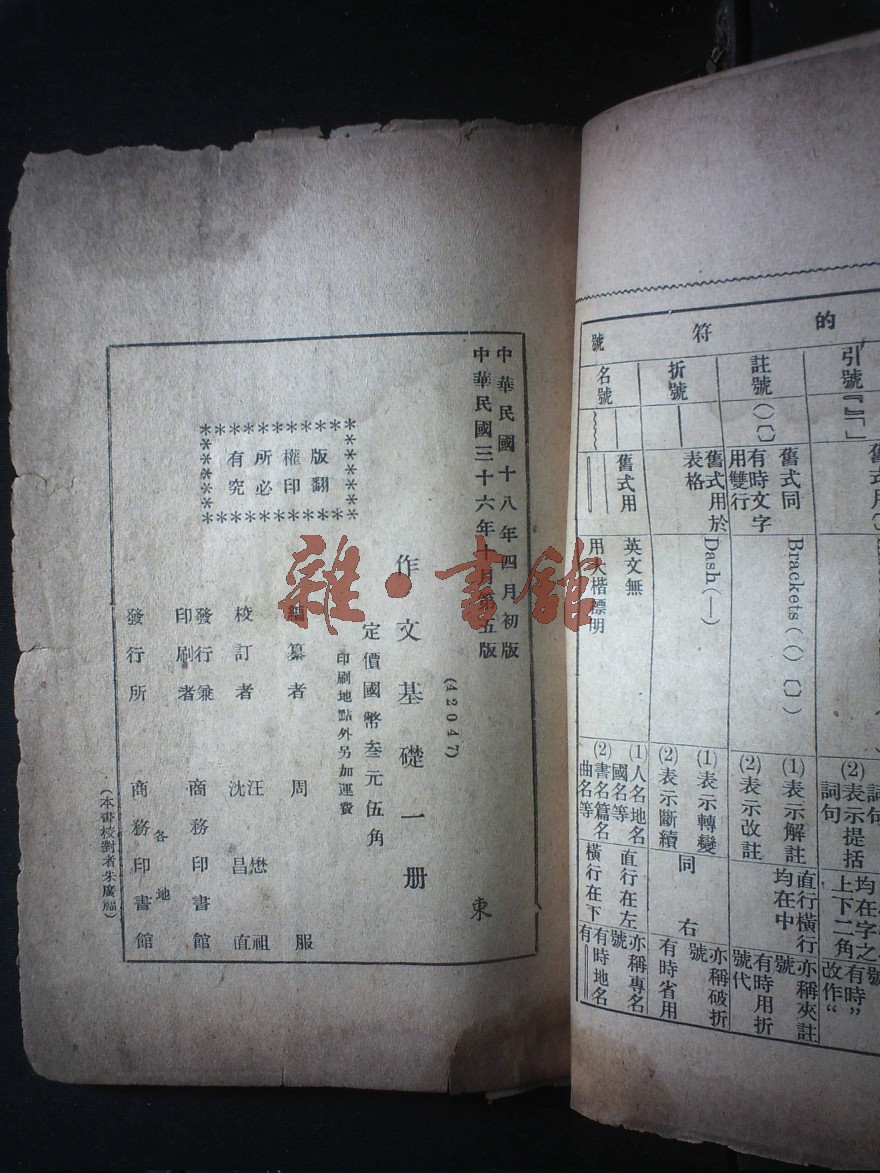 的
符
號
引號『』「」
註號()〔〕
舊式同
有時文字
用雙行
Brackets ( () 〔〕 )
(1)表示解註
(2)表示改註
直行橫行
均在中
亦稱夾註
號
有時用折
號代
折號
舊式用於
表格
Dash (—)
(1)表示轉變
(2)表示斷續
同
右
亦稱破折
號
有時省用
名號
舊式用
英文無
用大楷標明
(1)人名地名
國名等
(2)書名篇名
曲名等
直行在左
橫行在下
亦稱專名
號
有時地名
有
詞句
(2)表示提括
詞句
均在字之
上下二角
號
有時"
改作"
中華民國十八年四月初版
中華民國三十六年十月第五版
東
(42047)
作文基礎一册
定價國幣叁元伍角
印刷地點外另加運費
版權所有
翻印必究
編纂者 周服
校訂者 汪懋祖
沈昌直
發行兼
印刷者 商務印書館
發行所 各地
商務印書館
(本書校對者朱廣福)
雜·書館